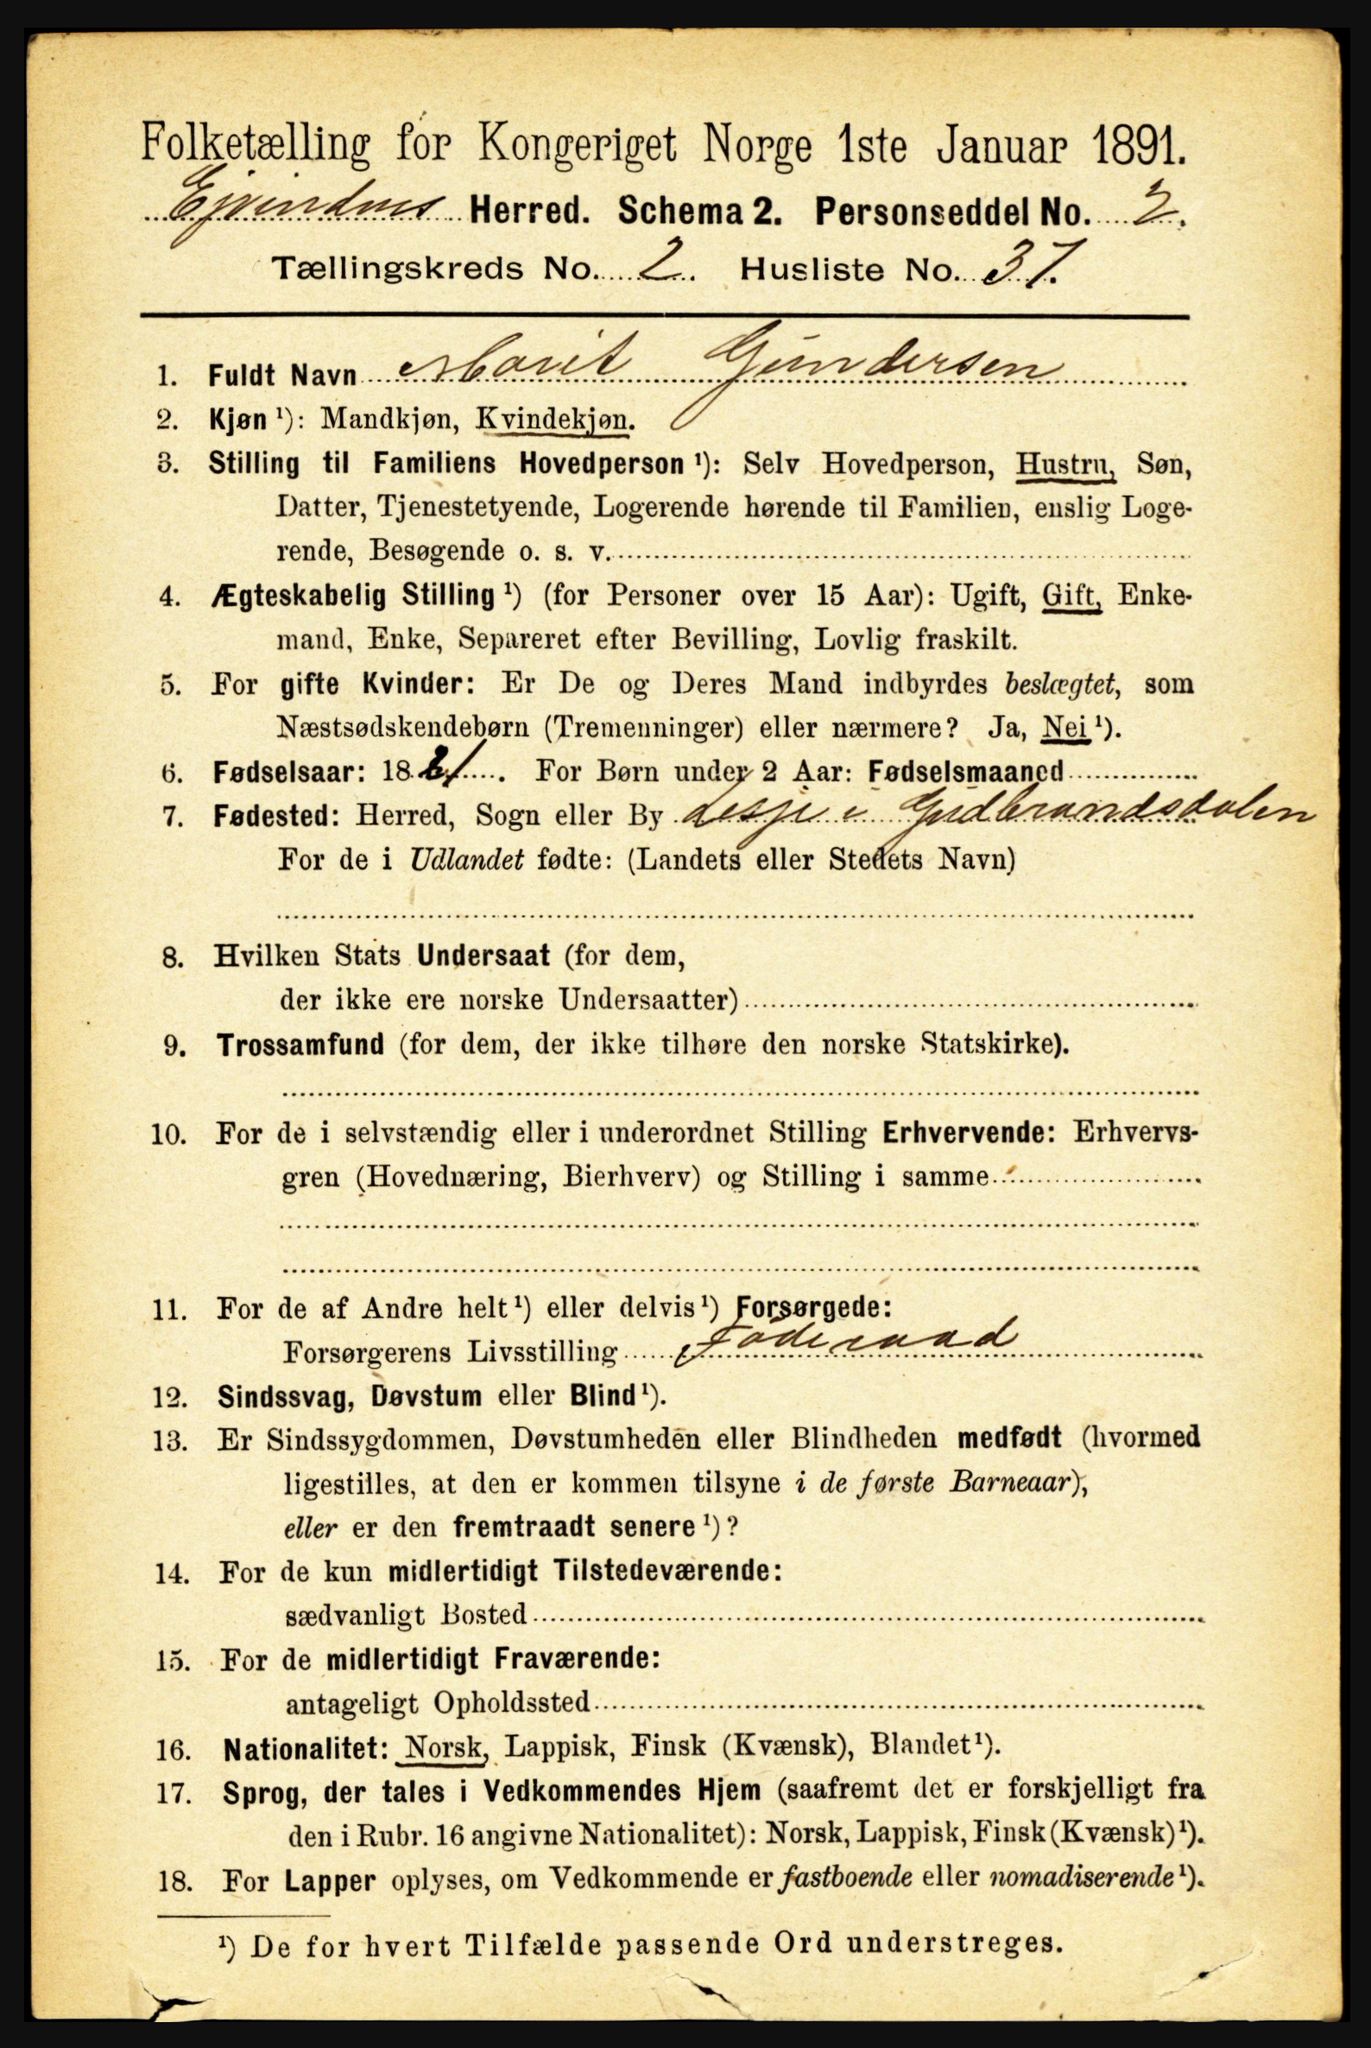 Folketælling for Kongeriget Norge 1ste Januar 1891.
Ejvindvig Herred. Schema 2. Personseddel No. 2.
Tællingskreds No. 2. Husliste No. 37.
1. Fuldt Navn Marit Gundersen
2. Kjøn ¹): Mandkjøn, Kvindekjøn.
3. Stilling til Familiens Hovedperson ¹): Selv Hovedperson, Hustru, Søn,
Datter, Tjenestetyende, Logerende hørende til Familien, enslig Loge-
rende, Besøgende o. s. v.
4. Ægteskabelig Stilling ¹) (for Personer over 15 Aar): Ugift, Gift, Enke-
mand, Enke, Separeret efter Bevilling, Lovlig fraskilt.
5. For gifte Kvinder: Er De og Deres Mand indbyrdes beslægtet, som
Næstsødskendebørn (Tremenninger) eller nærmere? Ja, Nei ¹).
6. Fødselsaar: 1821. For Børn under 2 Aar: Fødselsmaaned
7. Fødested: Herred, Sogn eller By Lesje i Gudbrandsdalen
For de i Udlandet fødte: (Landets eller Stedets Navn)
8. Hvilken Stats Undersaat (for dem,
der ikke ere norske Undersaatter)
9. Trossamfund (for dem, der ikke tilhøre den norske Statskirke).
10. For de i selvstændig eller i underordnet Stilling Erhvervende: Erhvervs-
gren (Hovednæring, Bierhverv) og Stilling i samme
11. For de af Andre helt ¹) eller delvis ¹) Forsørgede:
Forsørgerens Livsstilling Føderaad
12. Sindssvag, Døvstum eller Blind ¹).
13. Er Sindssygdommen, Døvstumheden eller Blindheden medfødt (hvormed
ligestilles, at den er kommen tilsyne i de første Barneaar),
eller er den fremtraadt senere ¹)?
14. For de kun midlertidigt Tilstedeværende:
sædvanligt Bosted
15. For de midlertidigt Fraværende:
antageligt Opholdssted
16. Nationalitet: Norsk, Lappisk, Finsk (Kvænsk), Blandet ¹).
17. Sprog, der tales i Vedkommendes Hjem (saafremt det er forskjelligt fra
den i Rubr. 16 angivne Nationalitet): Norsk, Lappisk, Finsk (Kvænsk) ¹).
18. For Lapper oplyses, om Vedkommende er fastboende eller nomadiserende ¹).
¹) De for hvert Tilfælde passende Ord understreges.